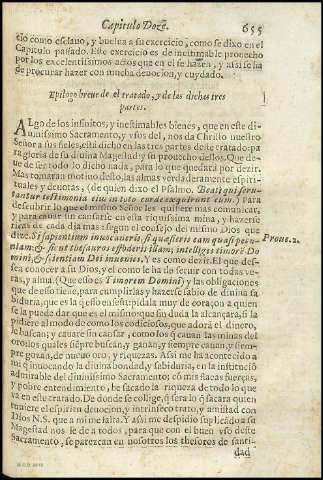 Capitulo Doze. 655
cio como esclauo, y buelua a su exercicio, como se dixo en el
Capitulo passado. Este exercicio es de inestimable prouecho
por los excelentissimos actos que en el se hazen, y assi se ha
de procurar hazer con mucha deuocion, y cuydado.
Epilogo breue de el tratado, y de las dichas tres
partes.
ALgo de los infinitos, y inestimables bienes, que en este di-
uinissimo Sacramento, y vsos del, nos da Christo nuestro
Señor a sus fieles, està dicho en las tres partes deste tratado: pa
ra gloria de su diuina Magestad y su prouecho dellos. Que de-
ue de ser todo lo dicho nada, para lo que quedarà por dezir.
Mas tomaràn motiuo desto, las almas verdaderamente espiri-
tuales y deuotas, (de quien dixo el Psalmo. Beati qui scru-
tantur testimonia eius in toto corde exquirunt eum.) Para
descubrir lo que nuestro Señor les quisiere mas comunicar,
y para cauar sin cansarse en esta riquissima mina, y hazerse
ricas de cada dia mas: segun el consejo del mismo Dios que
dize. Si sapientiam inuocaueris, si quæsieris eam quasi pecu-
niam: & sicut thesauros effoderis illam; intelliges timorē Do
mini, & scientiam Dei inuenies. Y es como dezir. El que des-
sea conocer a su Dios, y el como le ha de seruir con todas ve-
ras, y alma. (Que esso es Timorem Domini) y las obligaciones
que de esso tiene, para cumplirlas, y hazerse sabio de diuina sa
biduria, que es la q̃ esso enseña: pidala muy de coraçon a quien
se la puede dar que es el mismo: que sin duda la alcançarà, si la
pidiere al modo de como los codiciosos, que adorã el dinero,
le buscan; y cauare sin cansar, como los q̃ cauan las minas del
oro: los quales siẽpre buscan, y ganan, y siempre cauan, y siem-
pre gozan, de nueuo oro, y riquezas. Assi me ha acontecido a
mi q̃ inuocando la diuina bondad, y sabiduria, en la institucion
admirable del diuinissimo Sacramento; cõ mis flacas fuerças,
y pobre entendimiento, he sacado la riqueza de todo lo que
va en este tratado. De donde se colige, q̃ serà lo q̃ sacarà quien
tuuiere el espiritu deuocion, y intrinseco trato, y amistad con
Dios N.S. que a mi me falta. Y assi me despido suplicãdo a su
Magestad nos le dè a todos, para que con el buen vso deste
Sacramento, se parezcan en nosotros los thesoros de santi-
dad
Prouer. 2.